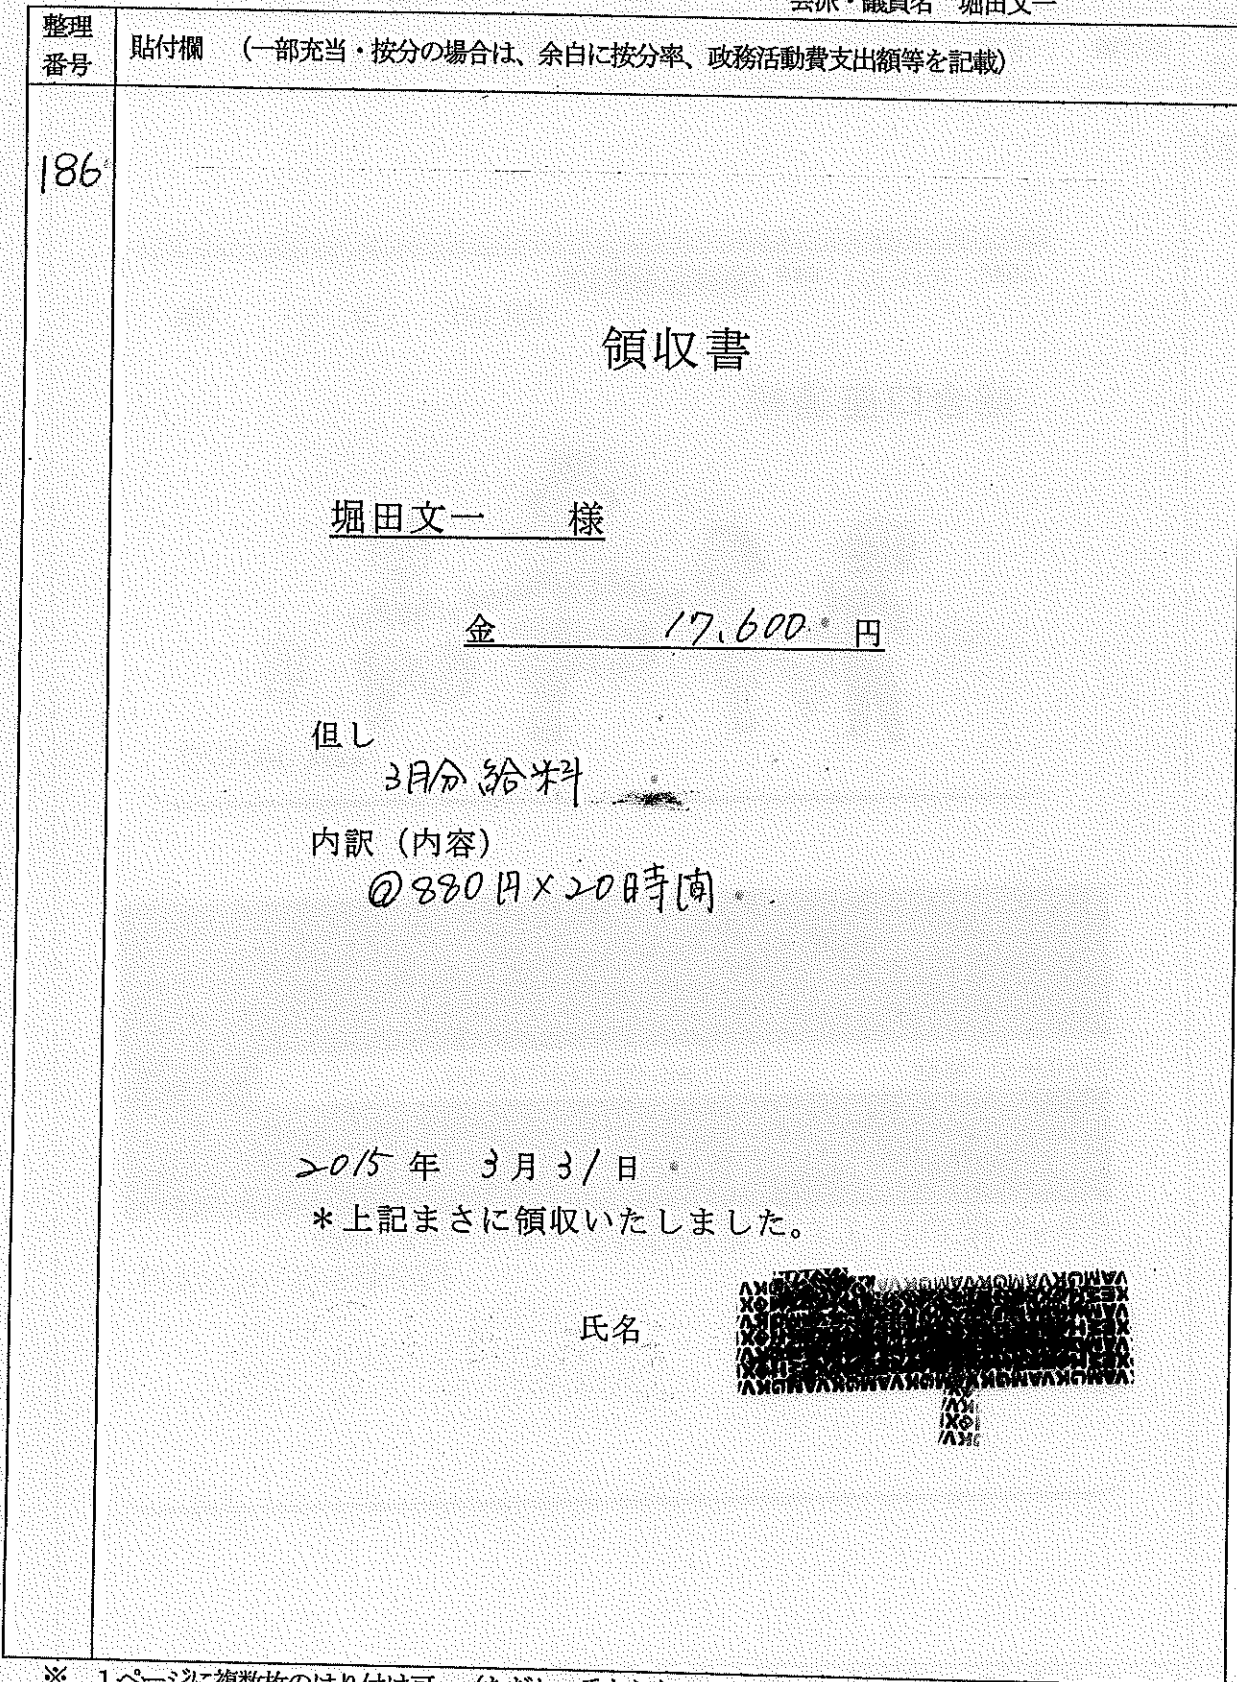 会派・議員名 堀田文一
整理番号
貼付欄 (一部充当・按分の場合は、余白に按分率、政務活動費支出額等を記載)
186
領収書
堀田文一 様
金 17,600 円
但し
3月分給料
内訳（内容）
@880円×20時間
2015年 3月31日
*上記まさに領収いたしました。
氏名
※ 1ページに複数枚のはり付け可